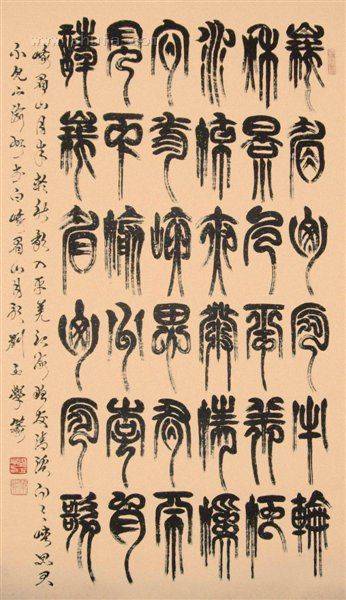 峩眉山月半輪
秋影入平羌江
水流夜發清溪
向三峽思君不
見下渝州李白
詩峩眉山月歌
峨眉山月半輪秋影入平羌江水流夜發清溪向三峽思君
不見下渝州李白峨眉山月歌劉玉學篆